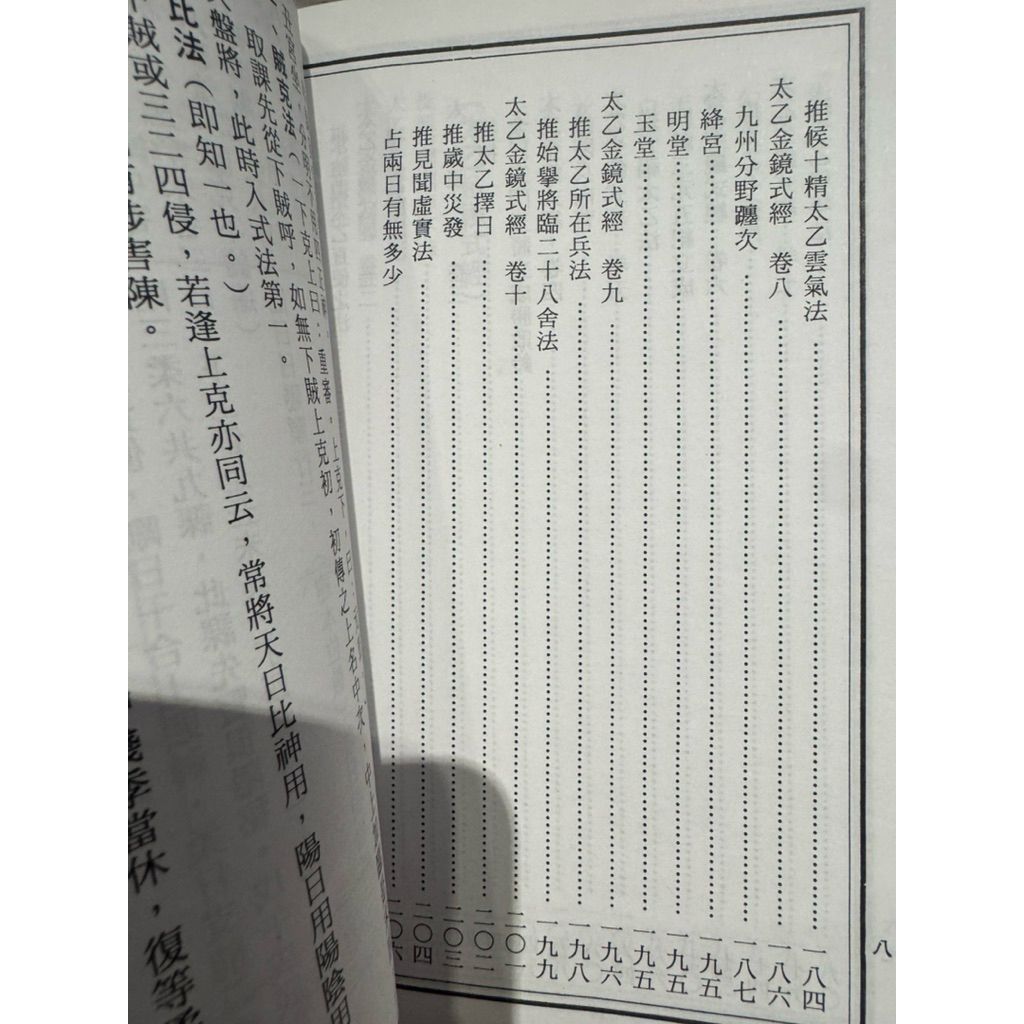 推候十精太乙雲氣法……一八四
太乙金鏡式經　卷八……一八六
九州分野躔次……一八七
絳宮……一九五
明堂……一九五
玉堂……一九五
太乙金鏡式經　卷九……一九六
推太乙所在兵法……一九八
推始擧將臨二十八舍法……一九九
太乙金鏡式經　卷十……二〇一
推太乙擇日……二〇二
推歲中災發……二〇三
推見聞虛實法……二〇四
占兩日有無多少……二〇六
八
賊克法（一下克上曰：重審。上克下
取課先從下賊呼，如無下賊上克初，初傳之上名中次，中上
盤將，此時入式法第一。
比法（即知一也。）
賊或三二四侵，若逢上克亦同云，常將天日比神用，陽日用陽陰用
涉害陳。
季當休，復等